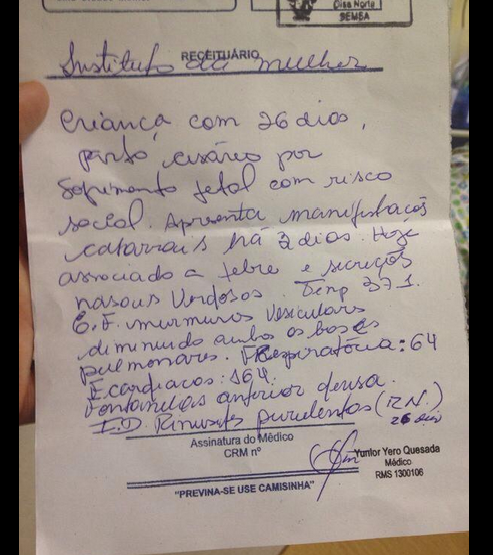 Disa Norte
SEMSA
RECEITUÁRIO
Instituto da mulher
Criança com 26 dias,
parto cesáreo por
Sofrimento fetal com risco
social. Apresenta manifestações
catarrais há 3 dias. Hoje
associado a febre e secreções
nasais Verdosos. Temp 37.1.
E.F. murmuros vesiculares
diminuido ambos os bases
pulmonares. FRespiratória: 64
F cardiacos: 164.
Fontanelas anterior densa.
I.D. Rinusites purulentas (RN.)
26 dias
Assinatura do Médico
CRM nº
Yunior Yero Quesada
Médico
RMS 1300106
"PREVINA-SE USE CAMISINHA"